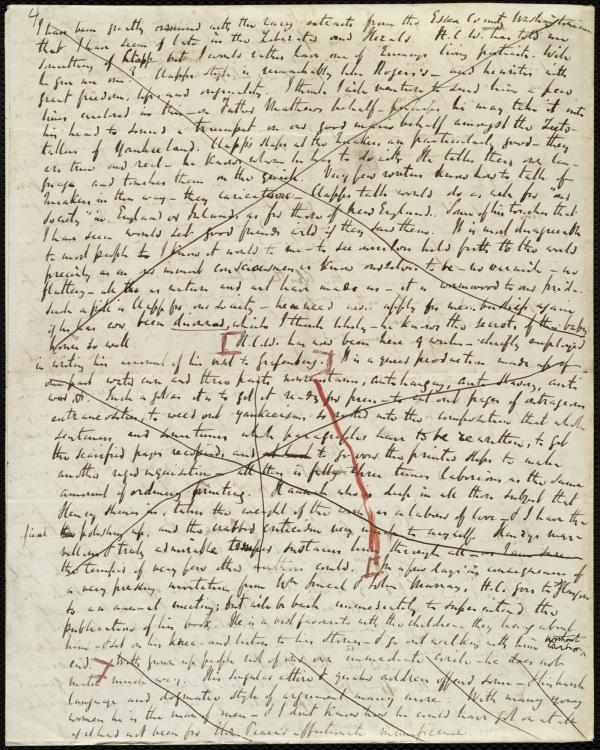 4
I have been greatly amused with the racy extracts from the Essex County Washingtonian
that I have seen of late in the Liberator and Herald. H.C.W. has told me
something of Clapp but I would rather have one of Quincy's living portraits. Will
he give me one? Clapp's style is remarkably like Rogers's — and he writes with
great freedom, life and originality. I think I will venture to send him a few
lines on Father Mathew's behalf — perhaps he may take it into
his head to sound a trumpet on our good man's behalf amongst the Teeto-
tallers of Yankee land. Clapp's slaps at the Quakers are particularly good — they
are true and real — he knows whom he has to do with. He talks their own lan-
guage and touches them on the quick. Very few writers know how to talk of
Quakers in this way — they caricature — Clapp's talk would do as well for "our
Society" in England or Ireland, as for those of New England. Some of his touches that
I have seen would set good friends wild if they saw them. It is most disagreeable
to most people & I know it would to me — to see ourselves held forth to the world
precisely as in our inmost consciousness we know ourselves to be — no varnish — no
flattery — all as nature and art have made us — it is wormwood to our pride.
Such a pill is Clapp for our society — he need never apply for membership again
if he has ever been disowned, which I think likely — he knows the secrets of the
house so well [H.C.W. has now been here a week — chiefly employed
in writing his account of his visit to Grafenberg.] It is a queer production made up of —
one part water cure and three parts , anti hanging, anti slavery, anti
war, &c. Such a job as it is to get it ready for press — to cut out pages of outrageous
to weed out yankeeisms, so rooted into the composition that whole
sentences and sometimes whole paragraphs have to be rewritten, to get
the scarified pages recopied, and to go over the printed slips to make
another rigid inquisition — all this is fully three times laborious as the same
amount of ordinary printing. Hannah who is deep in all those subjects that
Henry in, takes the weight of the work as a labour of love — I have the
final polishing up, and the crabbed criticism very much to myself. Henry's mar-
vellous & truly admirable temper sustains him through all —
the tempers of very few other could. [In a few days in consequence of
a very pressing invitation from Wm Smeal & John Murray, H.C. goes to Glasgow
to an annual meeting; but will be back immediately, to superintend the
publication of his book. He is a vast favourite with the children, they hang about
him — sit on his knee, and listen to his stories — & go out walking with him without
end.] With grown up people out of our own immediate circle — he does not
much way. His singular attire & quaker address offend some — & his harsh
language and dogmatic style of argument many more. With many young
women he is the man of men — I don't know how he could have got on at all
if it had not been for their affectionate